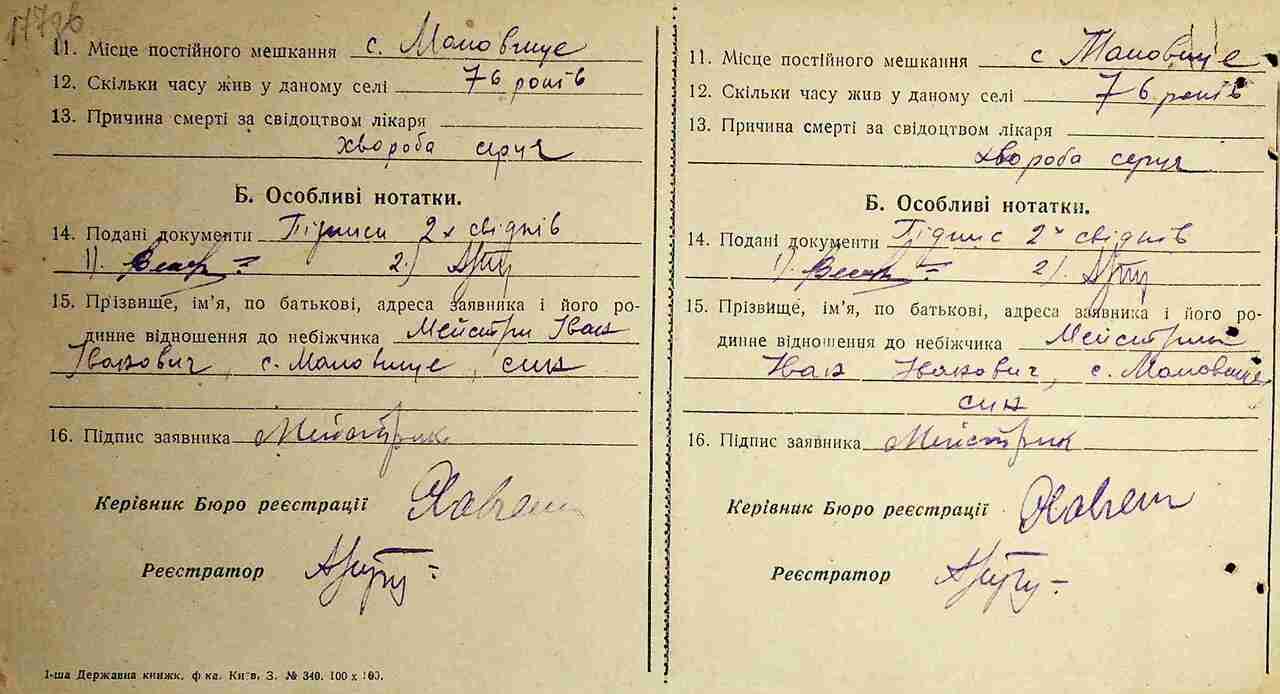 177зв
11. Місце постійного мешкання с. Маковище
12. Скільки часу жив у даному селі 76 років
13. Причина смерті за свідоцтвом лікаря
хвороба серця
Б. Особливі нотатки.
14. Подані документи Підписи 2х свідків
1). 2.)
15. Прізвище, ім'я, по батькові, адреса заявника і його ро-
динне відношення до небіжчика Мейстрик Іван
Іванович, с. Маковище, син
16. Підпис заявника Мейстрик
Керівник Бюро реєстрації
Реєстратор
1-ша Державна книжк. ф-ка. Київ. З. № 340. 100 х 100.
11. Місце постійного мешкання с Маковище
12. Скільки часу жив у даному селі 76 років
13. Причина смерті за свідоцтвом лікаря
хвороба серця
Б. Особливі нотатки.
14. Подані документи Підпис 2х свідків
1). 2).
15. Прізвище, ім'я, по батькові, адреса заявника і його ро-
динне відношення до небіжчика Мейстрик
Іван Іванович, с. Маковище,
син
16. Підпис заявника Мейстрик
Керівник Бюро реєстрації
Реєстратор